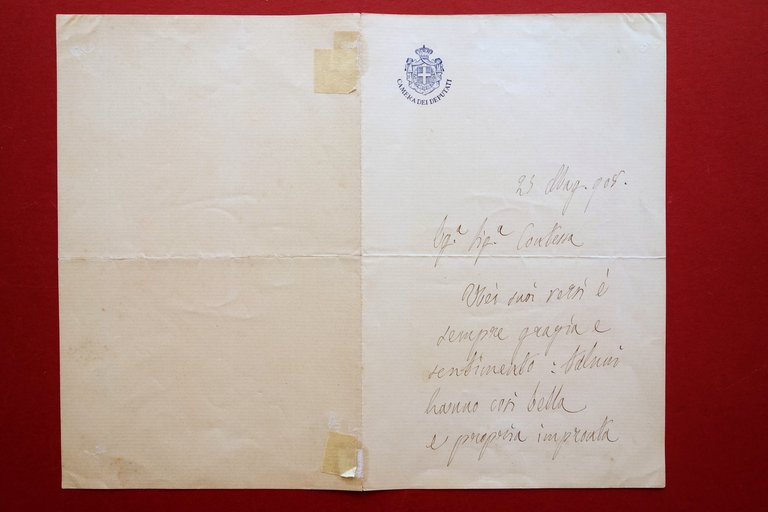 CAMERA DEI DEPUTATI
25 Mag. 908.
Eg.ª Sig.ª Contessa
Nei suoi versi è
sempre grazia e
sentimento: taluni
hanno così bella
e propria impronta